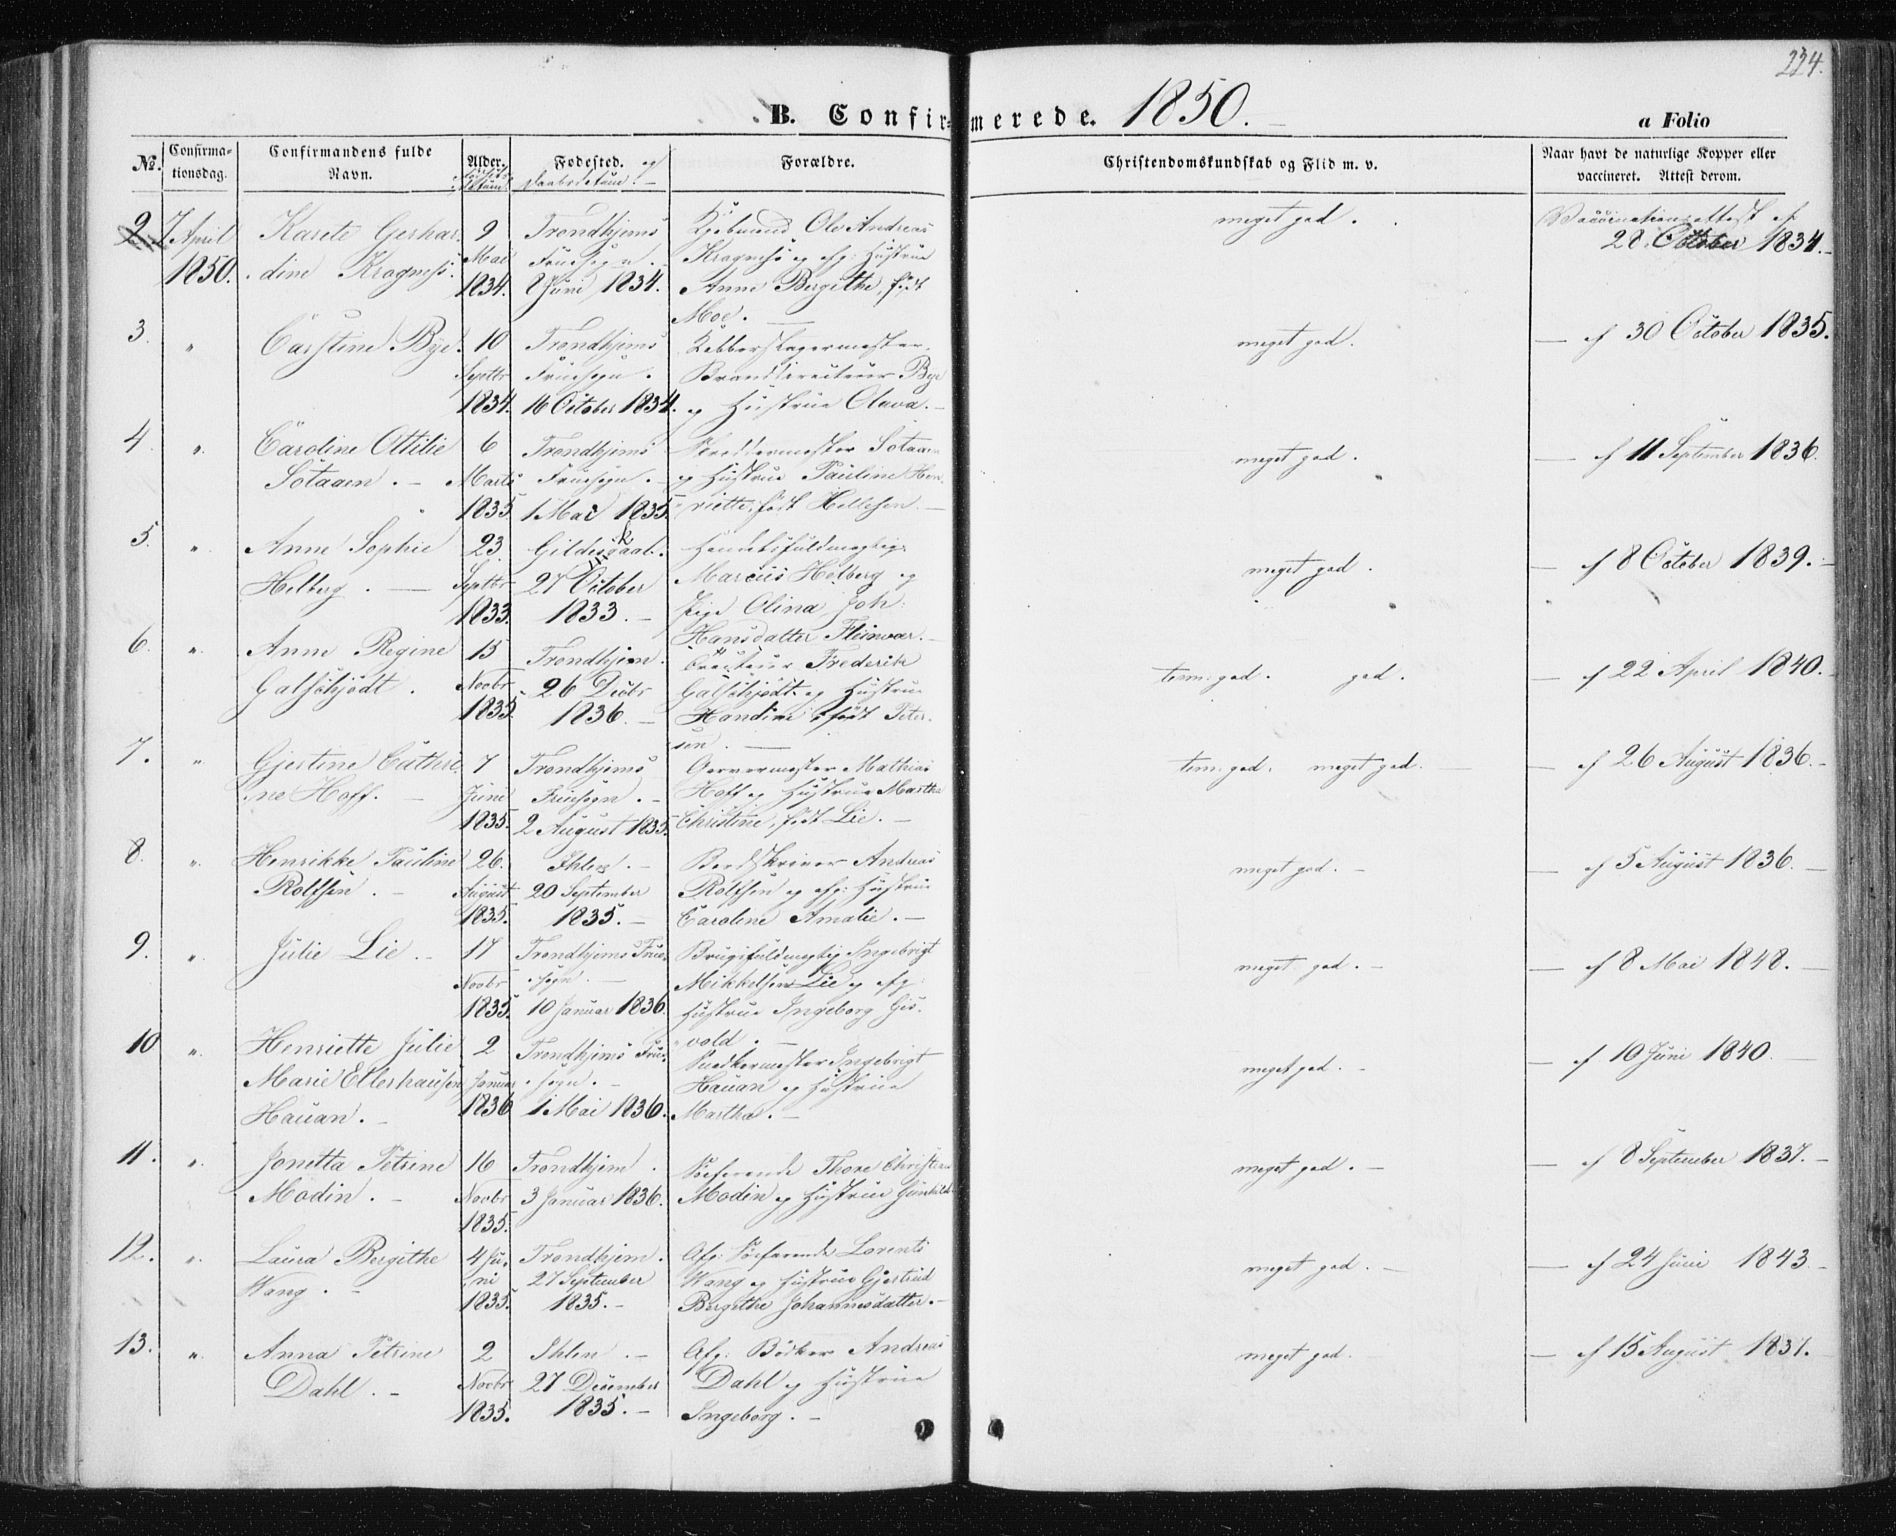 234.
B. Confirmerede. 1850.
a Folio
No.
Confirma-
tionsdag.
Confirmandens fulde
Navn.
Alder.
Fødested. og
Daabsdatum.
Forældre.
Christendomskundskab og Flid m. v.
Naar havt de naturlige Kopper eller
vaccineret. Attest derom.
2. 7 April Karete Gerhar- 9 Trondhjems Ole Andreas meget god. Vaccinationsattest af
1850. dine Kragness. Mai Fruesogn. Kragness og afg: Hustrue 28 October 1834.
1834. 8 Juni 1834. Anne Bergithe, født
Moe.
3. " Carstine Bye. 10 Trondhjems Kobberslagermester, meget god. — af 30 October 1835.
Septbr Fruesogn. Branddirecteur Bye
1834. 16 October 1834. og Hustrue Olava. —
4. " Caroline Ottilie 6 Trondhjems Skreddermester Sotaaen meget god. — af 11 September 1836.
Sotaaen. — Marts Fruesogn. — og Hustrue Pauline Hen-
1835 1 Mai 1835. riette, født Hellesen. —
5. " Anne Sophie 23 Gildeskaal. Handelsfuldmægtig meget god. — af 8 October 1839. —
Holberg. — Septbr 27 October Marcus Holberg og
1833. 1833. — Pige Olina Joh:
Hansdatter Fleinvær. —
6. " Anne Regine 15 Trondhjem. Frederik tem: god. god. — af 22 April 1840.
Galschjødt. Novbr 26 Decbr Galschjødt og Hustrue
1835. 1836. — Handine, født Peter-
sen. —
7. " Gjertine Cathri- 7 Trondhjems Garvermester Mathias tem: god. meget god. — af 26 August 1836. —
ne Hoff. — Juni Fruesogn. — Hoff og Hustrue Martha
1835. 2 August 1835. Christine, født Lie. —
8. " Henrikke Pauline 26. Ihlen. — Andreas meget god. — af 5 August 1836. —
Rolfsen. — August 20 September Rolfsen og afg: Hustrue
1835. 1835. — Caroline Amalie. —
9. " Julie Lie. 17 Trondhjems Frue- Brugsfuldmægtig Ingebrigt meget god. — af 8 Mai 1848. —
Novbr sogn. — Mikkelsen Lie og afg:
1835. 10 Januar 1836. Hustrue Ingeborg Gis-
vold. —
10 " Henriette Julie 2 Trondhjems Frue- Snedkermester Ingebrigt meget god. — af 10 Juni 1840. —
Marie Ellerhausen Januar sogn. — Hauan og Hustrue
Hauan. — 1836 1 Mai 1836. Martha. —
11. " Jonetta Petrine 16 Trondhjem. Søefarende Thore Christens. meget god. — af 8 September 1837. —
Modin. — Novbr 3 Januar 1836. Modin og Hustrue Gunhild.
1835.
12. " Laura Bergithe 4 Ju- Trondhjem. Afg: Søefarende Lorents meget god. — af 24 Juni 1843. —
Wang. — ni 27 September Wang og Hustrue Gjertrud
1835. 1835. — Bergithe Johannesdatter. —
13. " Anna Petrine 2 Ihlen. — Afg: Bødker Andreas meget god. — af 15 August 1837.
Dahl. — Novbr 27 December Dahl og Hustrue
1835. 1835. — Ingeborg. —